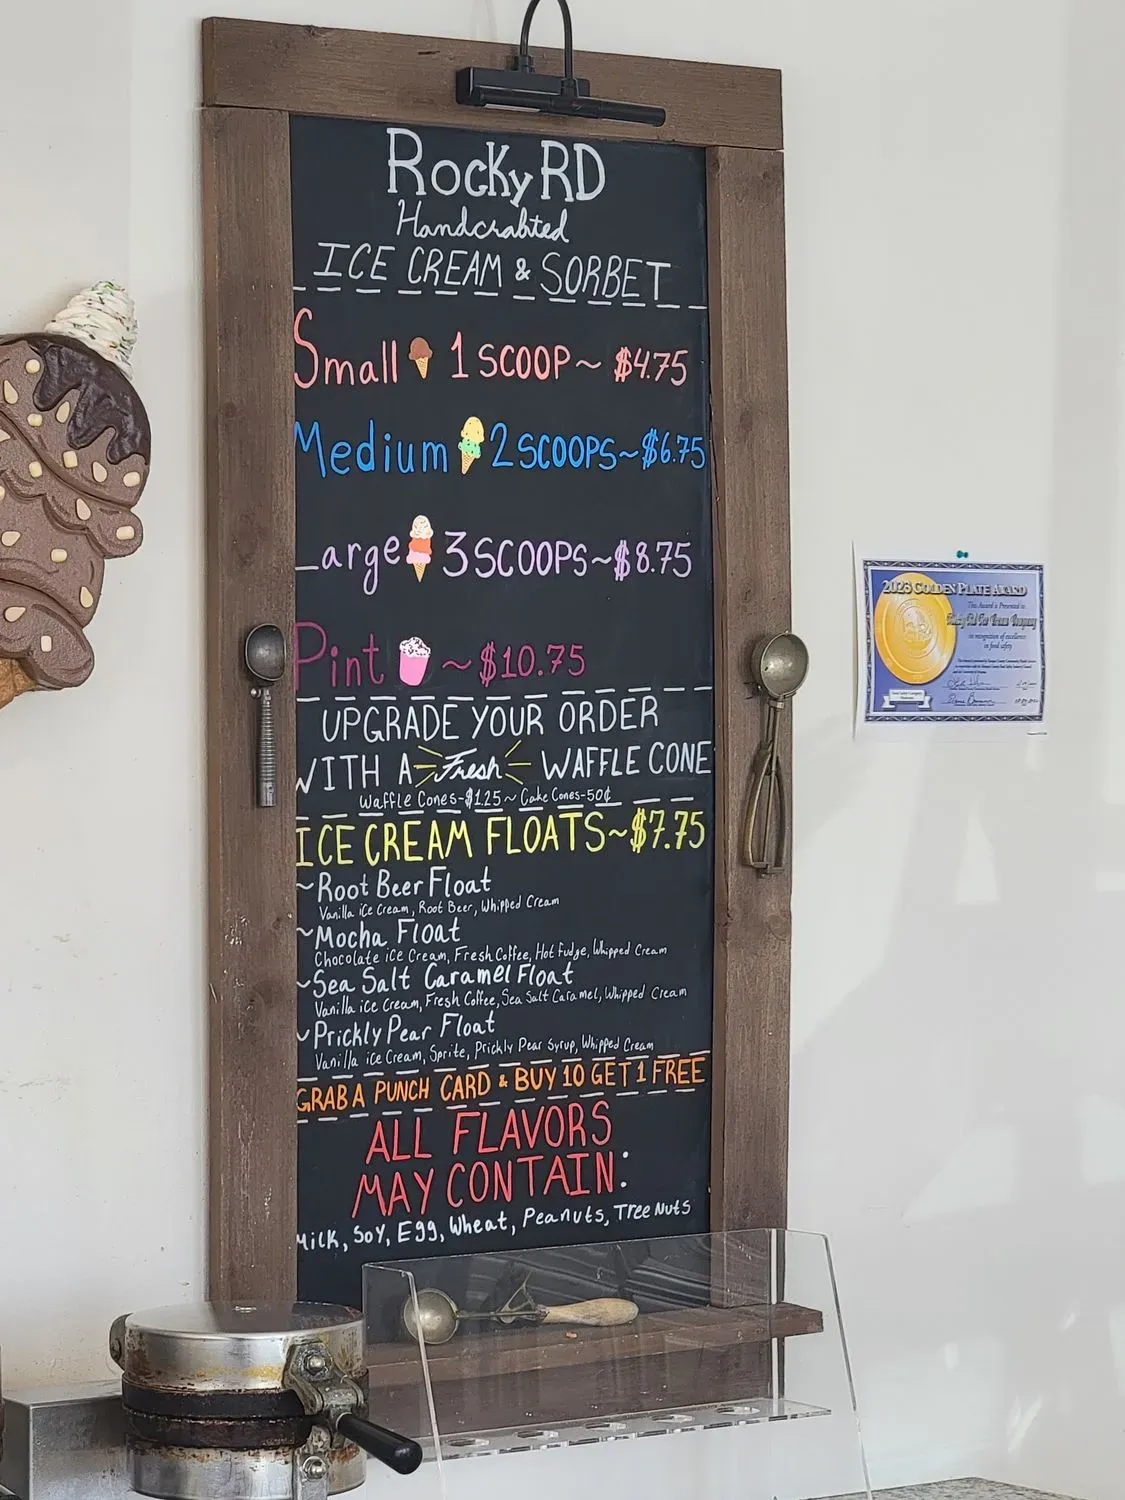 Rocky RD
Handcrafted
ICE CREAM & SORBET
Small 1 SCOOP ~ $4.75
Medium 2 SCOOPS ~ $6.75
Large 3 SCOOPS ~ $8.75
Pint ~ $10.75
UPGRADE YOUR ORDER
WITH A Fresh WAFFLE CONE
Waffle Cones-$1.25 ~ Cake Cones-50¢
ICE CREAM FLOATS ~ $7.75
~Root Beer Float
Vanilla ice Cream, Root Beer, Whipped Cream
~Mocha Float
Chocolate ice Cream, Fresh Coffee, Hot Fudge, Whipped Cream
~Sea Salt Caramel Float
Vanilla ice Cream, Fresh Coffee, Sea Salt Caramel, Whipped Cream
~Prickly Pear Float
Vanilla ice Cream, Sprite, Prickly Pear Syrup, Whipped Cream
GRAB A PUNCH CARD & BUY 10 GET 1 FREE
ALL FLAVORS
MAY CONTAIN:
Milk, Soy, Egg, Wheat, Peanuts, Tree Nuts
2023 GOLDEN PLATE AWARD
This Award is Presented to
Rocky Rd Ice Cream Company
in recognition of excellence
in food safety